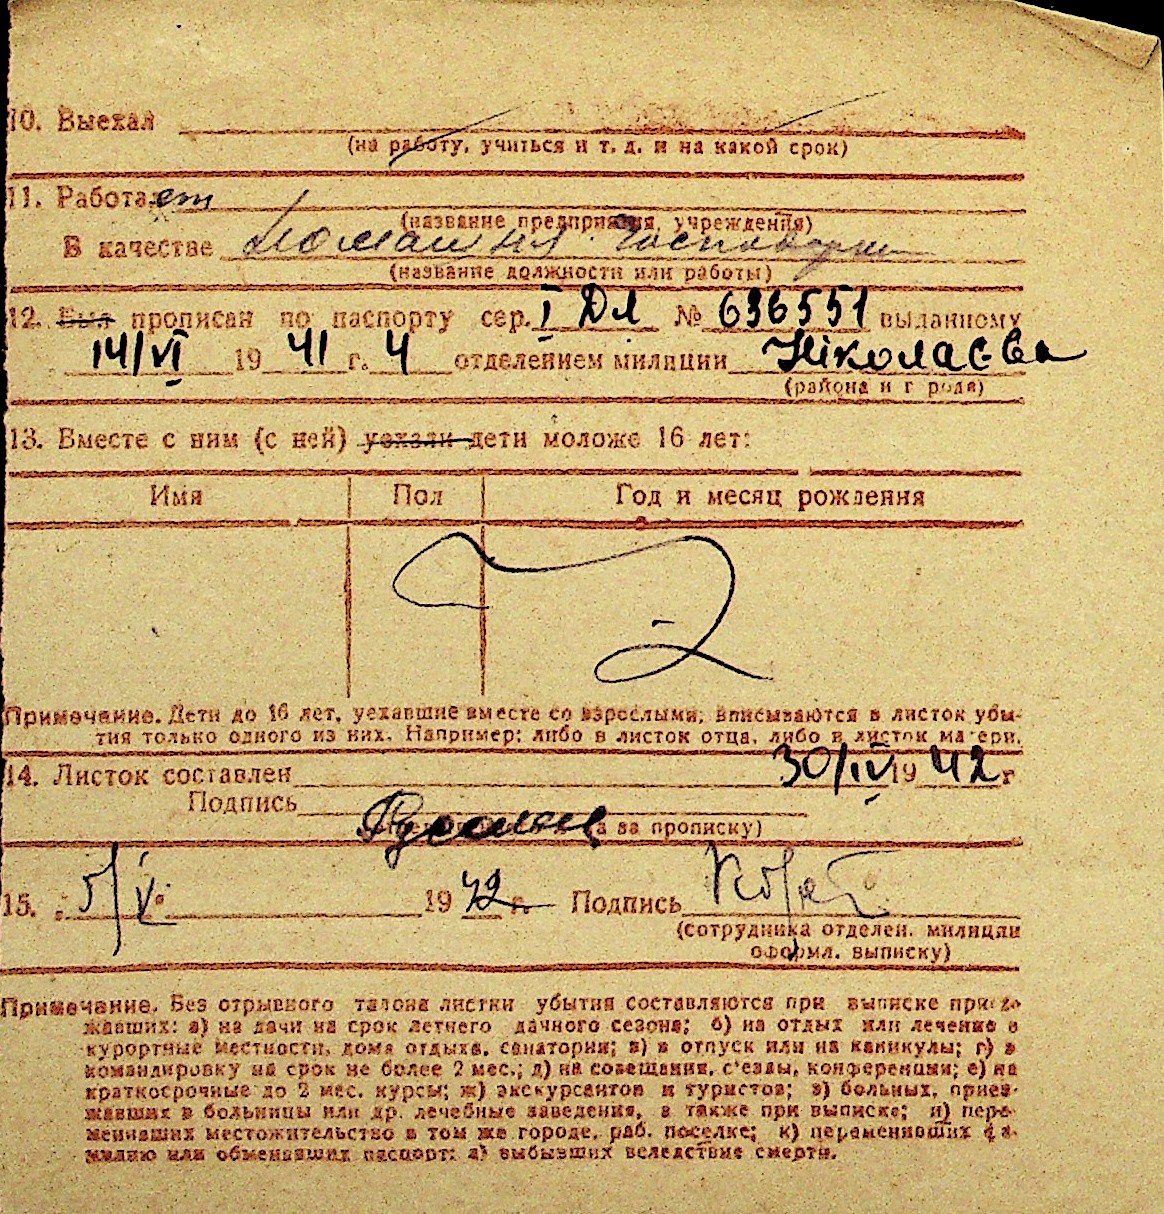 10. Выехал
(на работу, учиться и т. д. и на какой срок)
11. Работает
(название предприятия, учреждения)
В качестве Домашня господарка
(название должности или работы)
12. Был прописан по паспорту сер. I ДЛ № 636551 выданному
14/VI 1941 г. 4 отделением милиции Ніколаєва
(района и города)
13. Вместе с ним (с ней) уехали дети моложе 16 лет:
Имя Пол Год и месяц рождения
Примечание. Дети до 16 лет, уехавшие вместе со взрослыми, вписываются в листок убы-
тия только одного из них. Например: либо в листок отца, либо в листок матери.
14. Листок составлен 30/IV 1942 г
Подпись
а за прописку)
15. 5/V 1942 г. Подпись
(сотрудника отделен. милиции
оформл. выписку)
Примечание. Без отрывного талона листки убытия составляются при выписке приез-
жавших: а) на дачи на срок летнего дачного сезона; б) на отдых или лечение в
курортные местности, дома отдыха, санатории; в) в отпуск или на каникулы; г) в
командировку на срок не более 2 мес.; д) на совещания, с'езды, конференции; е) на
краткосрочные до 2 мес. курсы; ж) экскурсантов и туристов; з) больных, приез-
жавших в больницы или др. лечебные заведения, а также при выписке; и) пере-
менивших местожительство в том же городе, раб. поселке; к) переменивших фа-
милию или обменявших паспорт; л) выбывших вследствие смерти.